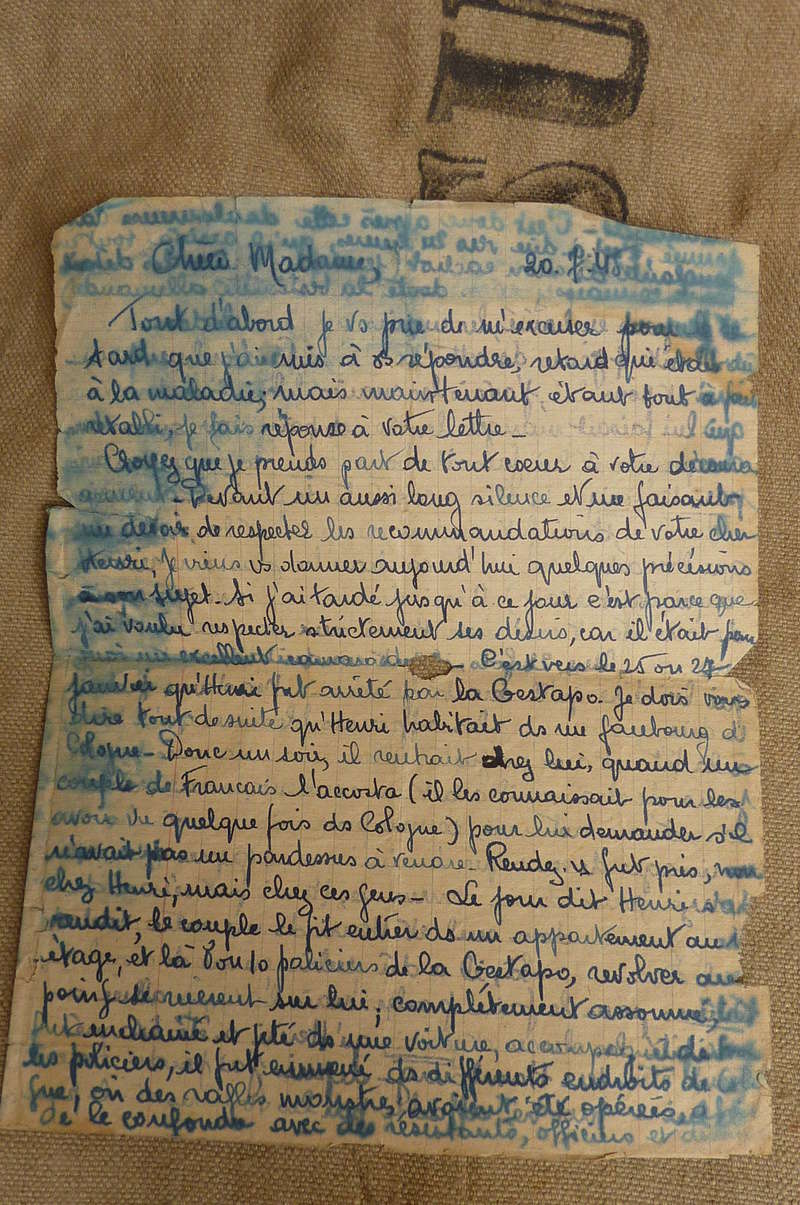 SU
Chère Madame, 20.7.45
Tout d'abord je vs prie de m'excuser pour le re
tard que j'ai mis à vs répondre, retard qui était dû
à la maladie; mais maintenant étant tout à fait
rétabli, je fais réponse à votre lettre_
Croyez que je prends part de tout coeur à votre découra
gement_ Devant un aussi long silence et me faisant
un devoir de respecter les recommandations de votre cher
Henri, je viens vs donner aujourd'hui quelques précisions
à son sujet. Si j'ai tardé jusqu'à ce jour c'est parce que
j'ai voulu respecter strictement ses désirs, car il était pour
moi un excellent camarade_ C'est vers le 25 ou 27
janvier qu'Henri fut arrêté par la Gestapo. Je dois vous
dire tout de suite qu'Henri habitait ds un faubourg d
Cologne_ Donc un soir, il rentrait chez lui, quand un
couple de Francais l'accosta (il les connaissait pour les
avoir vu quelque fois ds Cologne) pour lui demander s'il
n'avait pas un pardessus à vendre_ Rendez-vs fut pris, non
chez Henri, mais chez ces gens_ Le jour dit Henri s'y
rendit, le couple le fit entrer ds un appartement au
étage, et là 8 ou 10 policiers de la Gestapo, revolver au
poing se ruèrent sur lui; complétement assommé, il
fut enchainé et jeté ds une voiture, accompagné de
les policiers, il fut emmené ds différents endroits de Colo
gne, où des rafles monstres avaient été opérées,
de le confondre avec des résistants, officiers et